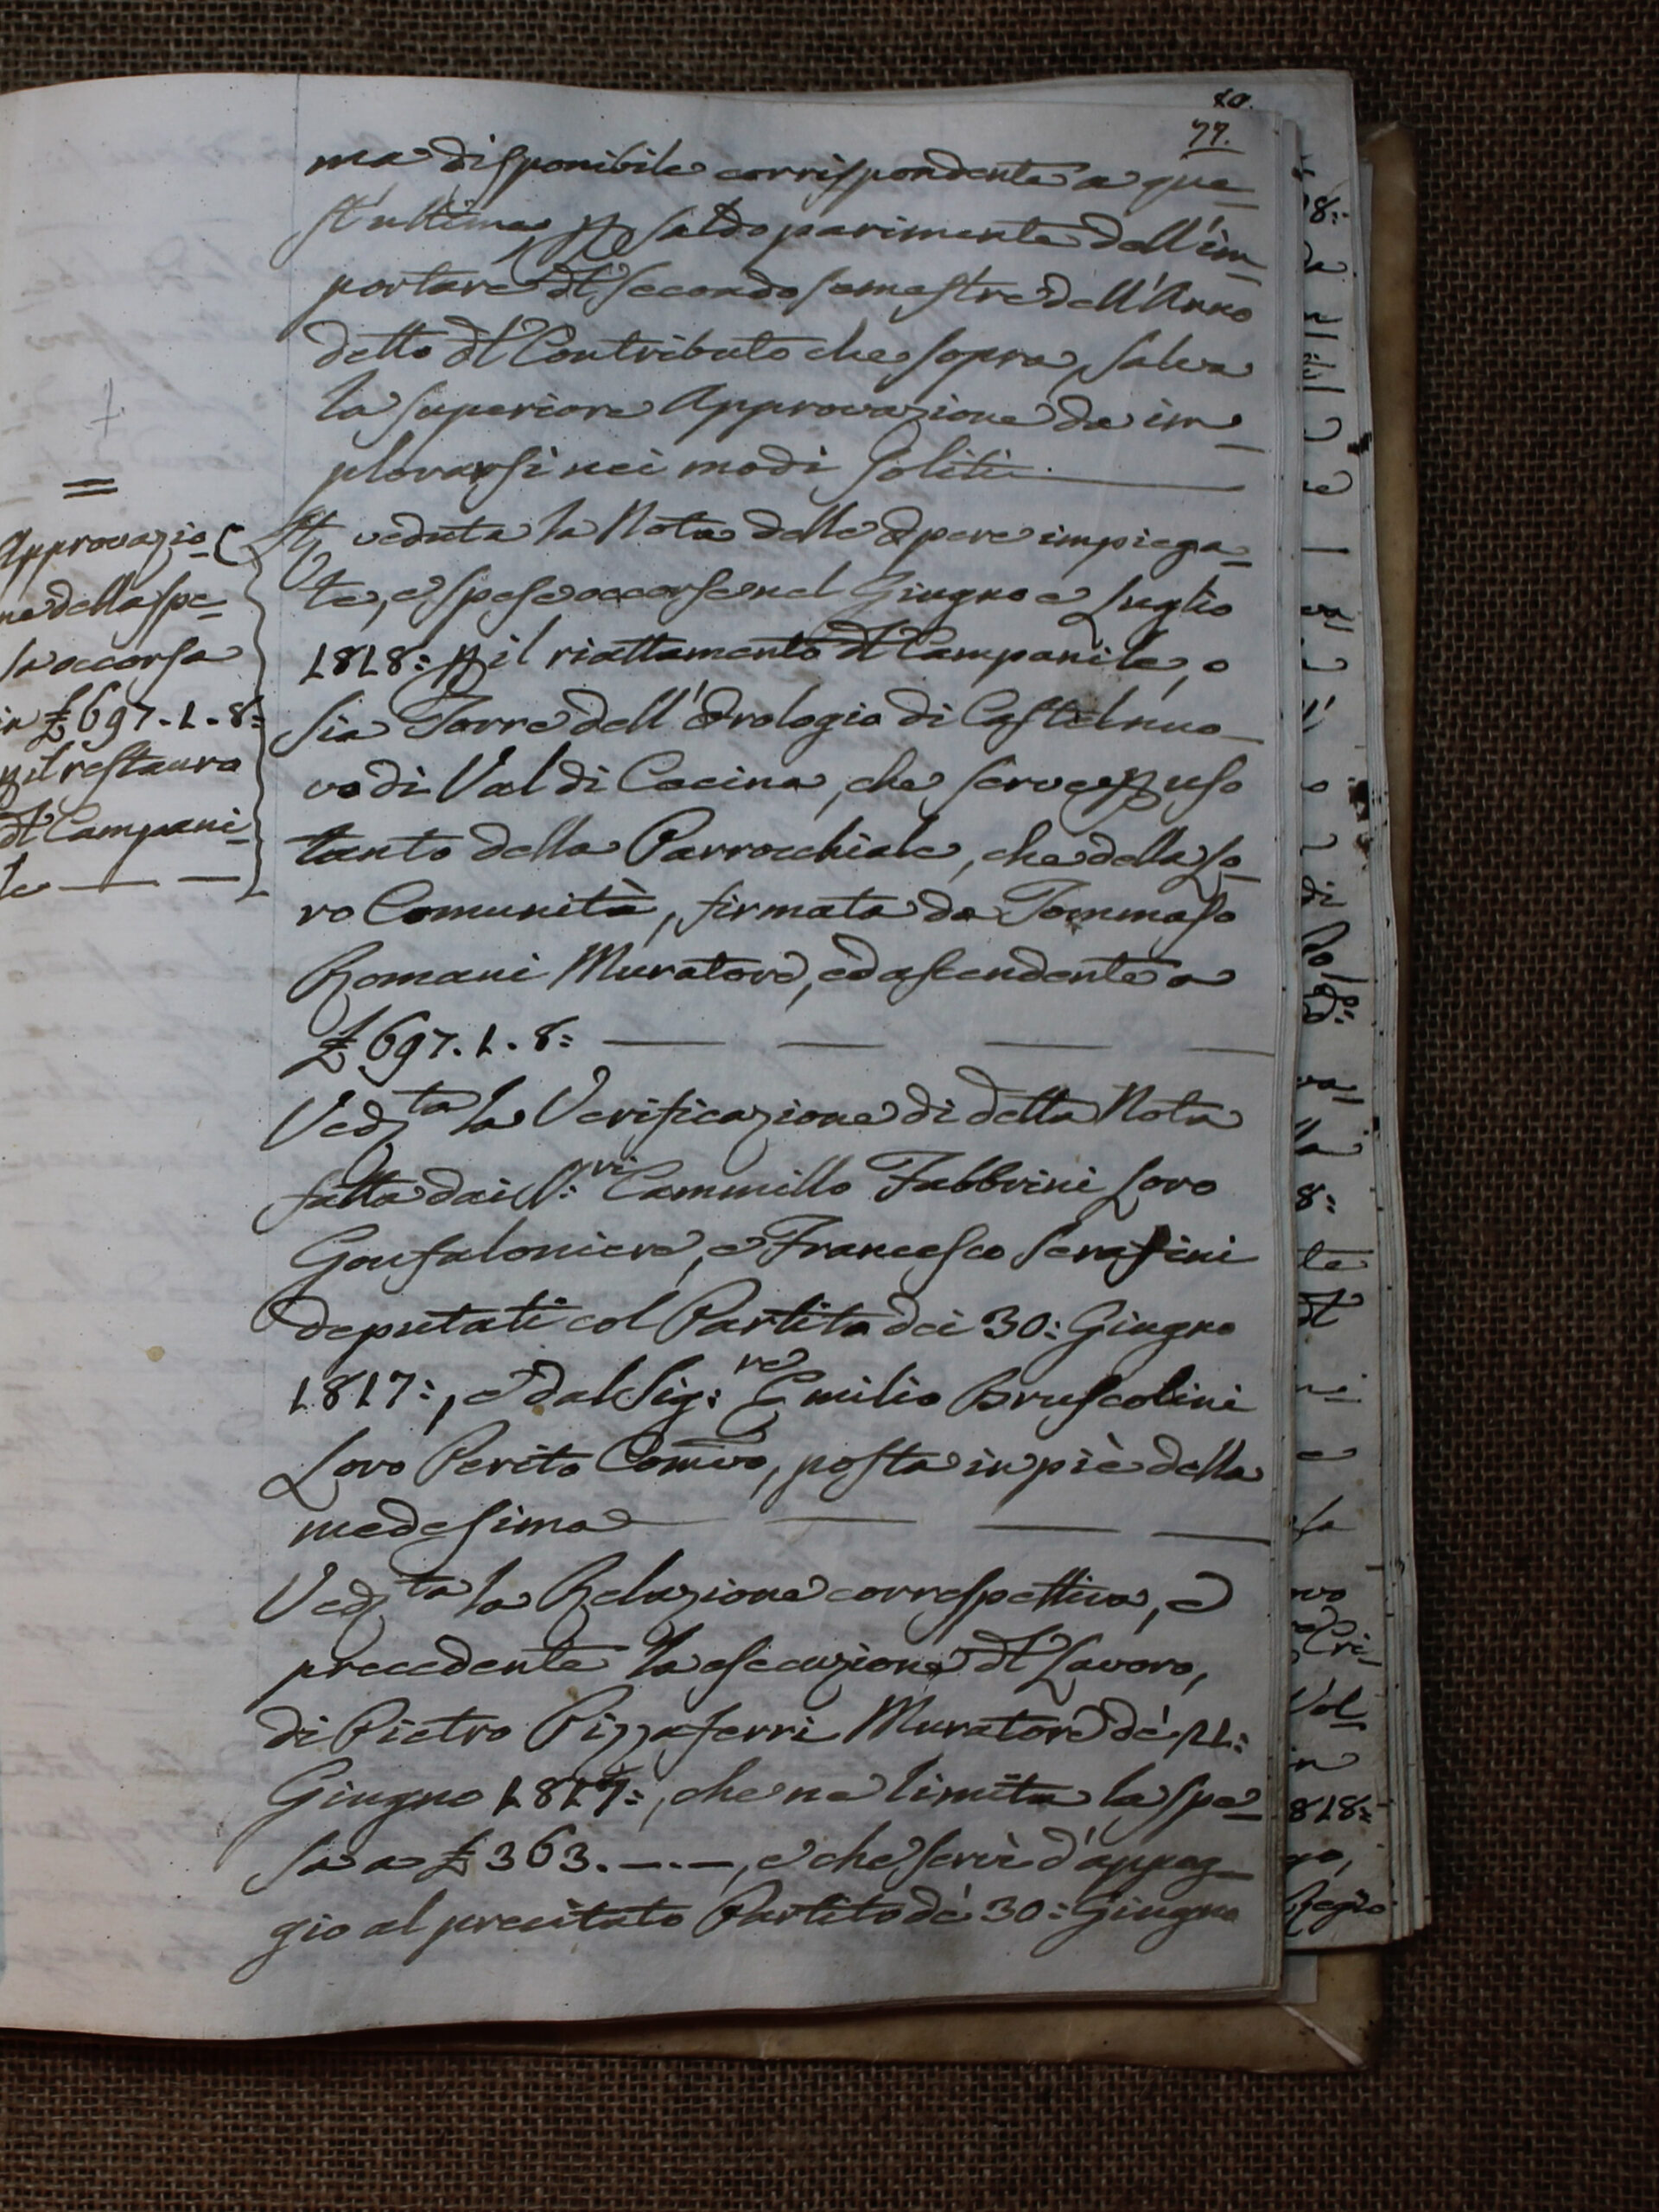 80.
77.
ma disponibile corrispondente a que=
st'ultima, p saldo parimente dell'im=
portare dl secondo semestre dell'Anno
detto dl Contributo che sopra, salva
la superiore Approvazione da im=
plorarsi nei modi soliti
Approvazio=
ne della spe=
sa occorsa
in £ 697.1.8=
p il restauro
dl Campani=
le
E veduta la Nota delle Opere impiega=
te, e spese occorse nel Giugno e Luglio
1818: p il riattamento dl Campanile, o
sia Torre dell'Orologio di Castelnuo=
vo di Val di Cecina, che serve p uso
tanto della Parrocchiale, che della Lo=
ro Comunità, firmata da Tommaso
Romani Muratore, ed ascendente a
£ 697.1.8=
Vedta la Verificazione di detta Nota
fatta dai S:ri Cammillo Fabbrini Loro
Gonfaloniere, e Francesco Serafini
deputati col Partito dei 30: Giugno
1817:, e dal Sig:re Emilio Bruscolini
Loro Perito Comvo, posta in piè della
medesima
Vedta la Relazione correspettiva, e
precedente la esecuzione dl Lavoro,
di Pietro Pizzaferri Muratore de'
Giugno 1817:, che ne limita la spe=
sa a £ 363.—.—, e che servì d'appog=
gio al precitato Partito de' 30: Giugno